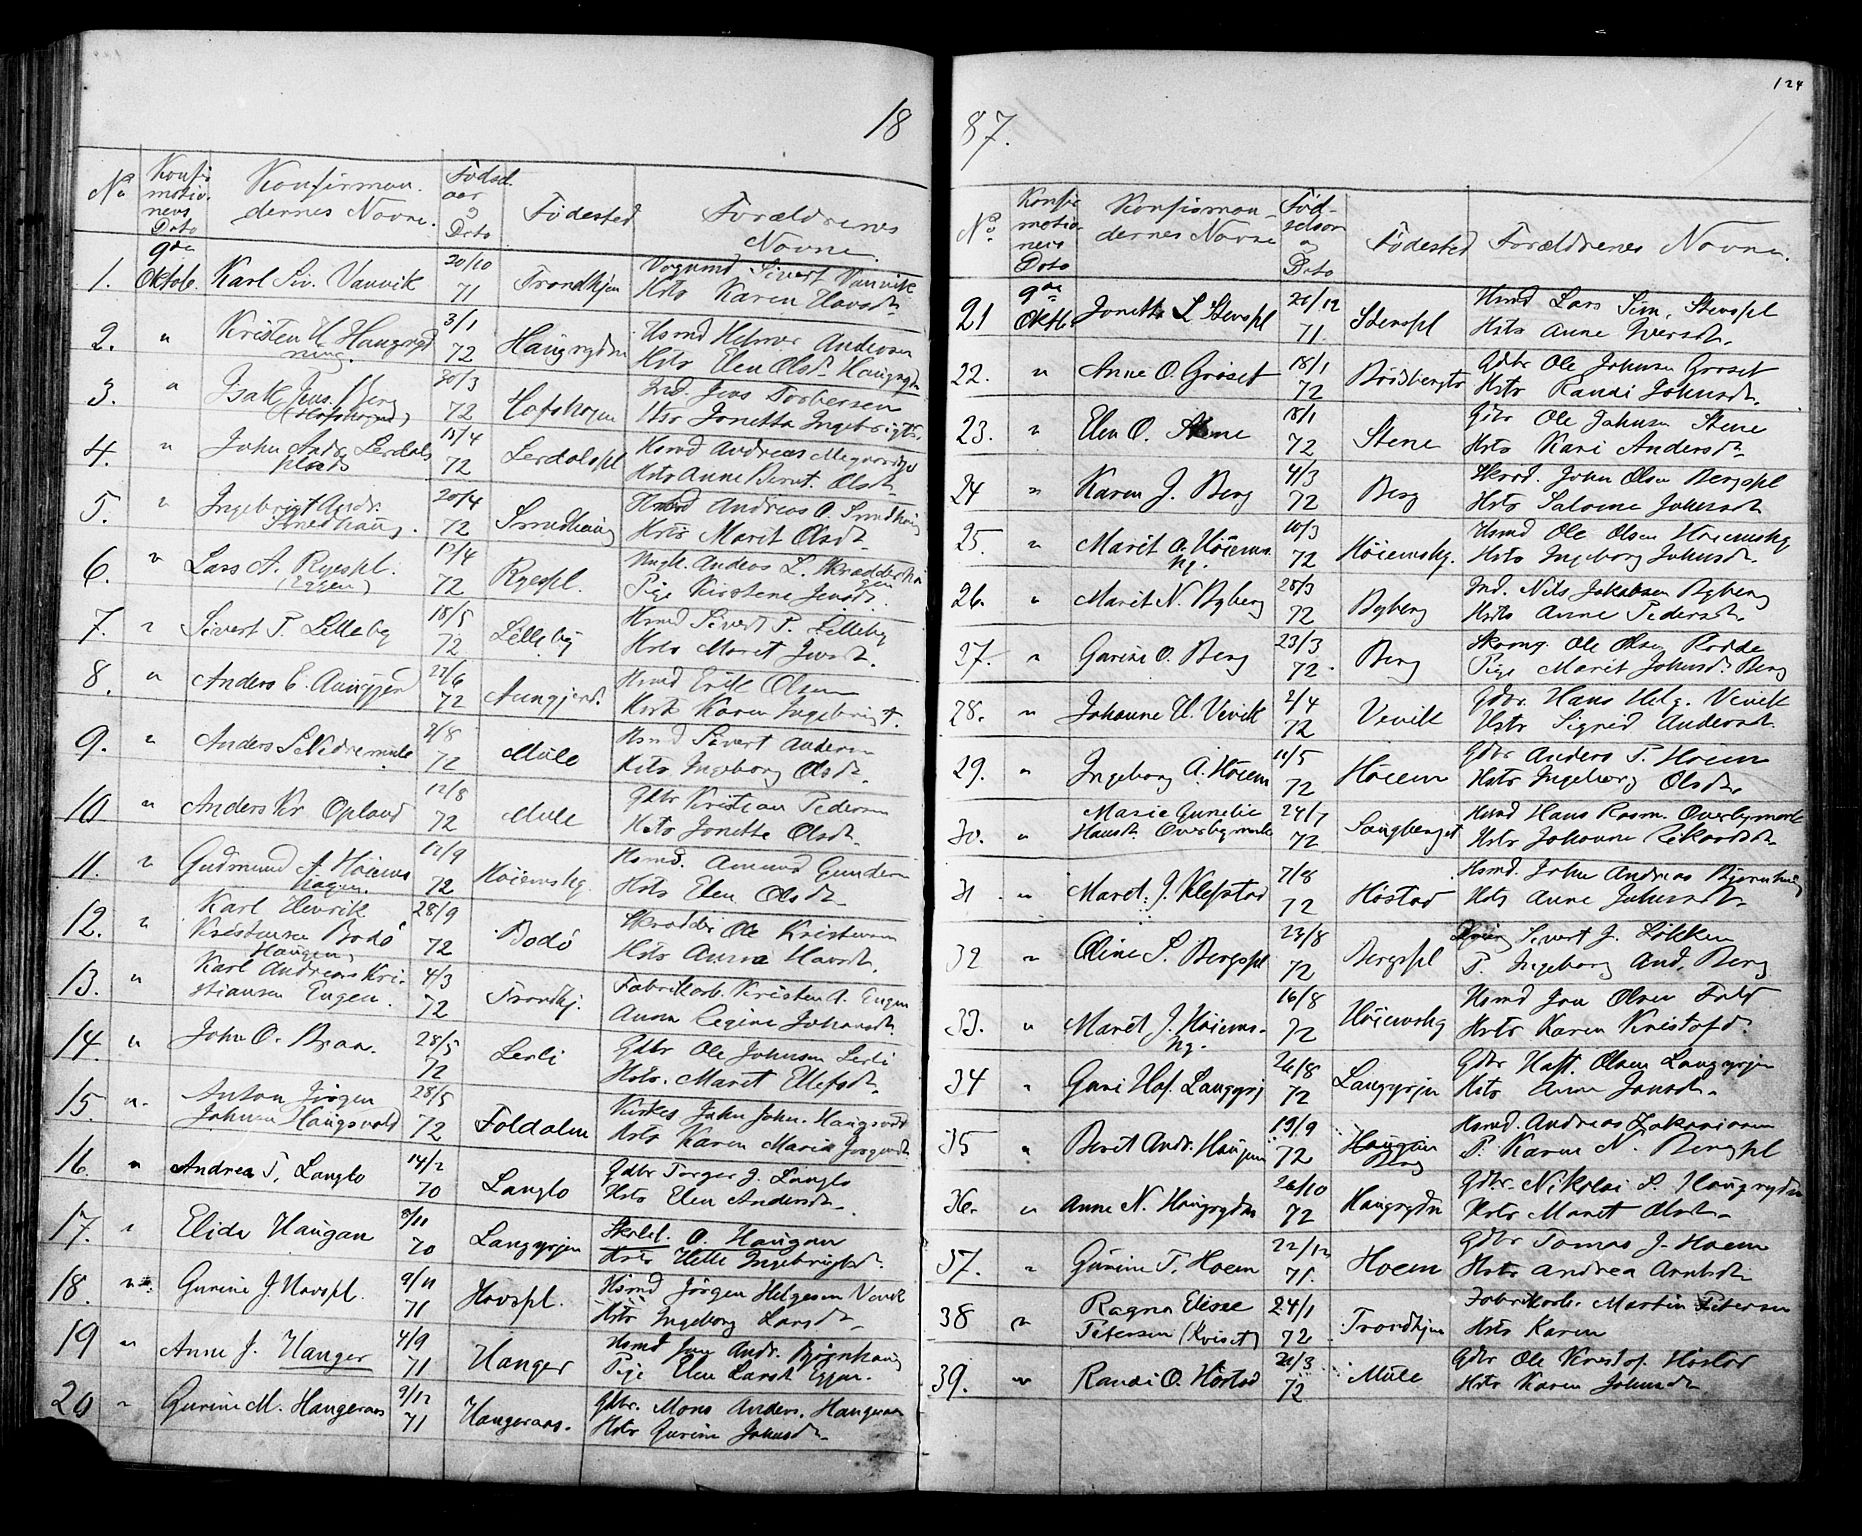 18
No
Konfir
matio-
nens
Dato
Konfirman-
dernes Navne.
Fødsels
aar
og
Dato
Fødested
Forældrenes
Navne.
1.
9de
Oktob.
Karl Siv. Vanvik
20/10
71
Trondhjem
Vognmd Sivert Vanvik
Hstr Karen Olavsdt.
2.
"
Kristen H Haugryd
ning.
3/1
72
Haugrydn
Husmd Helmer Andersen
Hstr Elen Olsdt. Haugrydn
3.
"
Isak Jens. Berg
(Hofshagen)
20/3
72
Hofshagen
Ind. Jens Torbersen
Hstr Jonetta Ingebrigts.
4.
"
John Andr. Lerdals
plads
15/4
72
Lerdalspl
Husmd Andreas
Hstr Anne Bernt. Olsdt.
5.
"
Ingebrigt Andr.
Smedhaug.
20/4
72
Smedhaug
Husmd Andreas O. Smedhaug
Hstr Marit Olsdt.
6.
"
Lars A. Ryespl.
(Eggen)
72
Ryespl.
Ungk. Andreas L.
Pige Kirstene Jensdt.
7.
"
Sivert P. Lilleby
18/5
72
Lilleby
Husmd Sivert P. Lilleby
Hstr Maret Jensdt.
8.
"
Anders E. Aungjer
27/6
72
Aungjerd.
Husmd Erik Olsen
Hstr Karen Ingebrigt.
9.
"
Anders S. Nedremule
2/8
72
Mule
Husmd Sivert Andersen
Hstr Ingeborg Olsdt.
10
"
Anders Kr. Opland
12/8
72
Mule
Gdbr Kristian Pedersen
Hstr Jonette Olsdt.
11.
"
Gudmund A Høiems
hagen.
12/9
72
Høiemshg.
Husmd. Amund Gundersen
Hstr Elen Olsdt.
12.
"
Karl Henrik
Kristensen Bodø
Haugen
28/9
72
Bodø
Skrædder Ole Kristensen
Hstr Anna Havdt.
13.
"
Karl Andreas Kri-
stiansen Engen.
4/3
72
Trondhj.
Fabrikarb. Kristen A. Engen
Anna Regine Johansdt.
14.
"
John O. Braa.
28/5
72
Lerli
Gdbr Ole Johnsen Lerli
Hstr. Maret Ellefsdt.
15
"
Anton Jørgen
Johnsen Haugsvold
28/5
72
Foldalen
Kirkes. John John. Haugsvold
Hstr Karen Maria Jørgensdt
16.
"
Andrea T. Langlo
14/2
70
Langlo
Gdbr Torger J. Langlo
Hstr Elen Andersdt.
17.
"
Elida Haugan
8/11
70
Langørjen
Skolel. O. Haugan
Hstr Mette Ingebrigtsdt.
18.
"
Gurine J. Hovspl.
9/11
71
Hovspl.
Husmd Jørgen Helgesen Vevik
Hstr Ingeborg Larsdt.
19
"
Anne J. Hanger
4/9
71
Hanger
Husmd Jon Andr. Bjørnhaug
Pige Elen Larsdt Eggen.
20
"
Gurine M. Haugeraas
9/12
71
Haugeraas.
Gdbr. Mons Anders. Haugeraas
Hstr Gurine Johnsdt.
124
87.
No
Konfir
matio-
nens
Dato
Konfirman-
dernes Navne
Fød-
selsaar
og
Dato
Fødested
Forældrenes Navne.
21
9de
Oktb.
Jonetta L Stenspl
26/12
71.
Stenspl
Husmd Lars Sim. Stenspl
Hstr Anne Iversdt.
22.
"
Anne O. Grøset
18/1
72
Gdbr Ole Johnsen Grøset
Hstr Randi Johnsdt.
23.
"
Elen O. Stene
18/1
72
Stene
Gdbr Ole Johnsen Stene
Hstr Kari Andersdt.
24
"
Karen J. Berg
4/3
72
Berg
Skræd. John Olsen Bergspl
Hstr Salome Johnsdt.
25.
"
Marit O. Høiems-
hg.
10/3
72
Høiemshg.
Husmd Ole Olsen Høiemshg
Hstr Ingeborg Johnsdt.
26.
"
Marit N. Byberg
28/3
72
Byberg
Ind. Nils Jakobsen Byberg
Hstr Anne Pedersdt.
27.
"
Gurine O. Berg
23/3
72.
Berg
Ole Olsen Rødde
Pige Marit Johnsdt. Berg
28.
"
Johanne H. Vevik
2/4
72
Vevik
Gdbr. Hans Helg. Vevik
Hstr Sigrid Andersdt.
29.
"
Ingeborg A. Høiem
11/5
72
Høiem
Gdbr Anders T. Hoem
Hstr Ingeborg Olsdt.
30.
"
Marie Gunelie
Hansdt. Overbymark
24/7
72
Saugberget
Husmd Hans Rasm. Overbymark
Hstr Johanne Rikardsdt.
31
"
Maret J. Klefstad
7/8
72
Høstad
Husmd. John Andreas Bjørnhaug
Hstr Anne Johnsdt.
32
"
Oline S. Bergspl
23/8
72
Bergspl
Sivert J. Løkken
P. Ingeborg And. Berg
33.
"
Maret J. Høiems-
hg.
16/8
72
Høiemshg
Husmd Jon Olsen Fald
Hstr Karen Kristofd.
34
"
Guri Haf. Langørj
26/8
72
Langørjen
Gdbr Haft. Olsen Langørjen
Hstr Ane Jonsdt.
35
"
Beret Andr. Haugen
19/9
72
Haugen
Berg
Husmd. Andreas Zakariasen
P. Karen N. Bergspl
36.
"
Anne N. Haugrydn
26/10
72
Haugrydn
Gdbr. Nikolai S. Haugrydn
Hstr Maret Olsdt.
37.
"
Gurine T. Hoem
22/12
71.
Hoem
Gdbr Tomas J. Hoem
Hstr Andrea Arntsdt.
38
"
Ragna Elisse
Petersen (Kviset)
24/1
72
Trondhjem
Fabrikarb. Martin Petersen
Hstr Karen
39.
"
Randi O. Høstad
21/3
72
Mule
Gdbr Ole Kristof. Høstad
Hstr Karen Johnsdt.